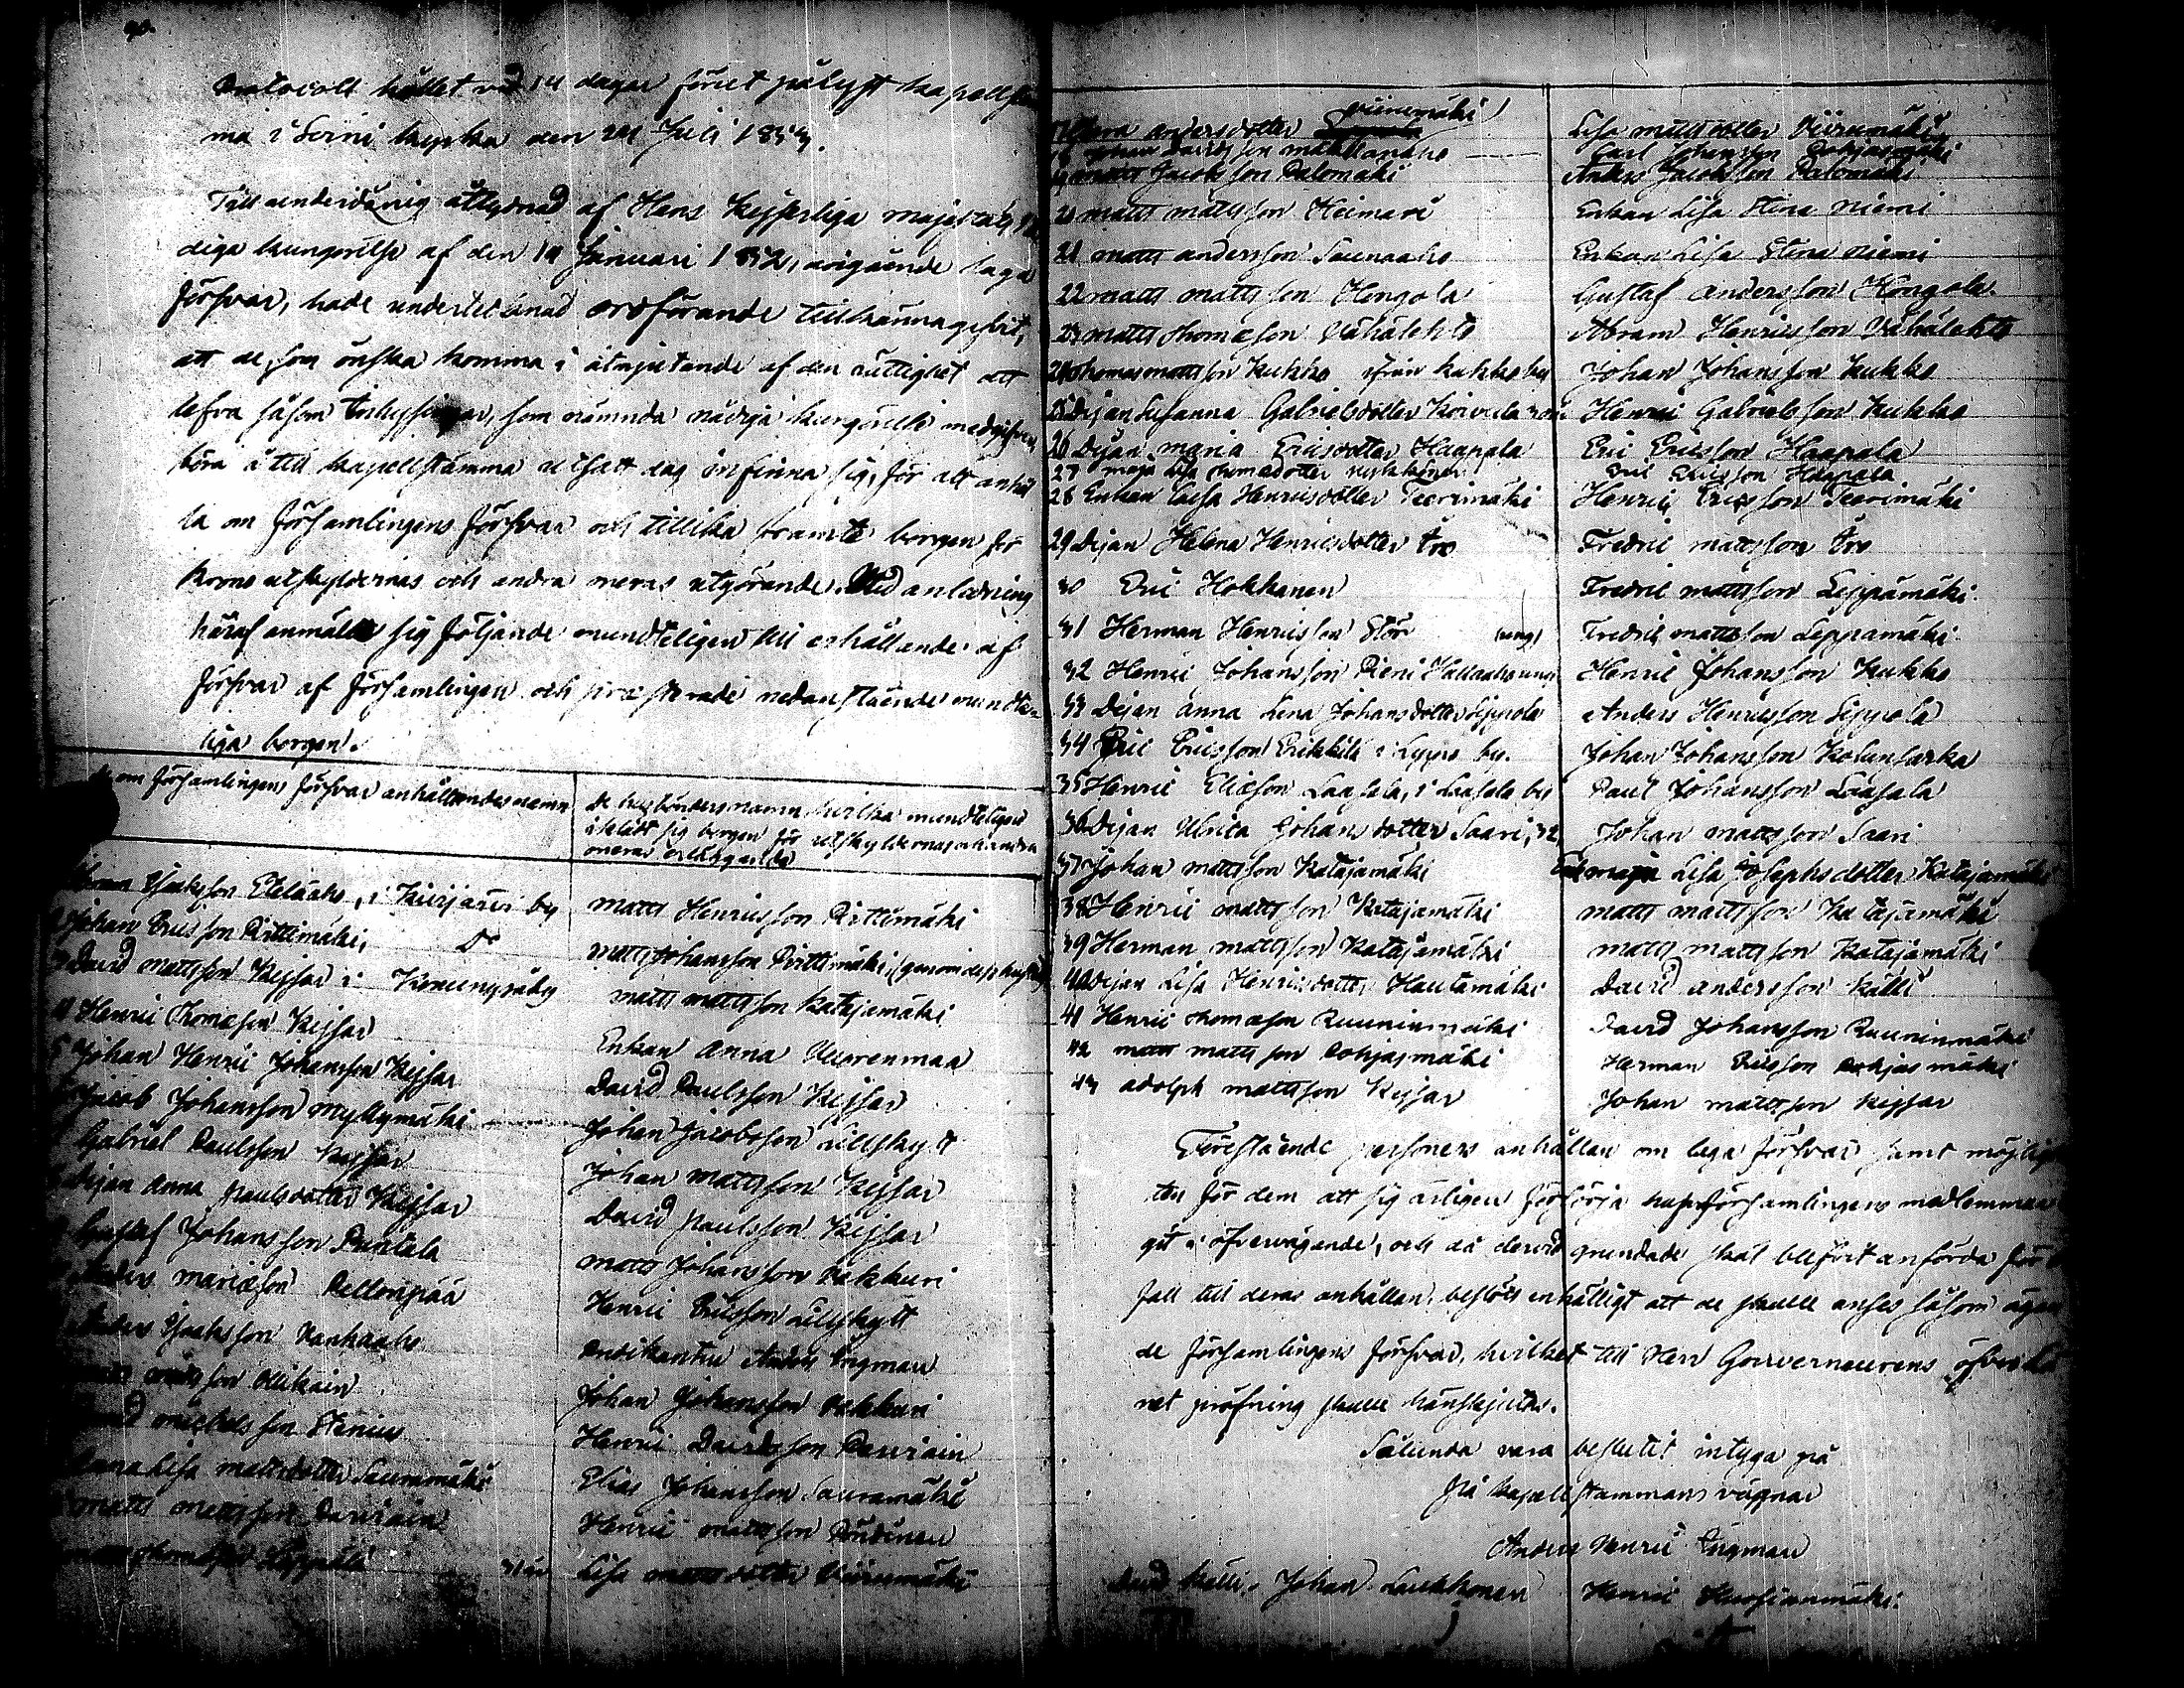 90.
Protocoll hållet vid 14 dagar förut pålyst kapellstäm
ma i Soini kyrka den 24 Juli 1853.
Till underdånig åtlydnad af Hans Kejserliga Majestäts
diga kungörelse af den 19 Januari 1852, angående laga
försvar, hade undertecknad ordförande tillkännagifvit,
att de, som önska komma i åtnjutande af den rättighet att
lefva såsom inhysingar, som nämnda nådiga kungörelse medgifver
böra å till kapellstämma utsatt dag infinna sig, för att anhål
la om församlingens försvar och tillika framte borgen för
krono utskyldernas och andra oneras utgörande. Med anledning
häraf anmälte sig följande mundteligen till erhållande af
försvar af församlingen och presterade nedanstående mundte
liga borgen.
de om församlingens försvar anhållandes namn
de husbönders namn hvilka mundteligen
iklädt sig borgen för utskyldernas och andra
oneras erläggande
Isaksson Etelaaho, i Kuivjärvi by
Matts Henricsson Pirttimäki
2 Johan Ericsson Pirttimäki, Do
Matts Johansson Pirttimäki (genom dess hustru)
3 David Mattsson Kejsar i Konungsåby
Matts Mattsson Katajamäki
4 Henric Thomæson Kejsar
Enkan Anna Vuorenmaa
5 Johan Henric Johansson Kejsar
David Paulsson Kejsar
Jacob Johansson Myllymäki
Johan Jacobsson Lillskytt
Gabriel Paulsson Kejsar
Johan Mattsson Kejsar
Pijan Anna Paulsdotter Kejsar
David Paulsson Kejsar
Gustaf Johansson Puntala
Matts Johansson Pekkuri
Anders Mariæson Pellonpää
Henric Ericsson Lillskytt
Anders Isaksson Kankaaho
Predikanten Anders Ingman
son Ollikain
Johan Johansson Pekkuri
David Michelsson Stenius
Henric Davidsson Parviain
Anna Lisa Mattsdotter Sauramäki
Elias Johansson Sauramäki
Matts Mattsson Parviain
Henric Mattsson Pöudinen
Leppälä
Lisa Mattsdotter Viirumäki
Andersdotter Viinimäki
Lisa Mattsdotter Viirumäki
18 Johan Davidsson
Carl Johansson Pohjasmäki
19 Matts Jacobsson Palomäki
Anders Jacobsson Palomäki
20 Matts Mattsson Heimari
Enkan Lisa Stina Niemi
21 Matts Andersson Saunaaho
Enkan Lisa Stina Niemi
22 Matts Mattsson Kongola
Gustaf Andersson Kongola.
23 Matts Thomæson Vähälehto
Abram Henricsson Vähälehto
24 Thomas Mattsson Kukko ifrån Kukko by
Johan Johansson Kukko
25 Pijan Susanna Gabrielsdotter Koivula
Henric Gabrielsson Kukko
26 Pijan Maria Ericsdotter Haapala
Eric Ericsson Haapala
27 Maja Lisa Thomædotter
Eric Ericsson Haapala
28 Enkan Caisa Henricsdotter Teerimäki
Henric Ericsson Teerimäki
29 Pijan Helena Henricsdotter Åro
Fredric Mattsson Åro
30 Eric Hokkanen
Fredric Mattsson Leppämäki.
31 Herman Henricsson Stör (ung)
Fredric Mattsson Leppämäki.
32 Henric Johansson Pieni
Henric Johansson Kukko
33 Pijan Anna Lena Johansdotter Seppola
Anders Henricsson Seppola
34 Eric Ericsson Erikkilä i Leppo by.
Johan Johansson Kolunsarka
35 Henric Eliæson Laasala, i Laasala by
Paul Johansson Laasala
36 Pijan Ulrica Johansdotter Saari, 32,
Johan Mattsson Saari
37 Johan Mattsson Katajamäki
Maja Lisa Josephsdotter Katajamäki
38 Henric Mattsson Katajamäki
Matts Mattsson Katajamäki
39 Herman Mattsson Katajamäki
Matts Mattsson Katajamäki
40 Pijan Lisa Henricsdotter Hautamäki
David Andersson Källi
41 Henric Thomæson Ruuninmäki
David Johansson Ruuninmäki
42 Matts Mattsson Pohjasmäki
Herman Ericsson Pohjasmäki
43 Adolph Mattsson Kejsar
Johan Mattsson Kejsar
Förestående personers anhållan om laga försvar samt möjlighe
ten för dem att sig ärligen försörja har församlingens medlemmar
git i öfvervägande, och då dervid grundade skäl blifvit anförda för
fall till deras anhållan, beslöts enhälligt att de skulle anses såsom ägan
de församlingens försvar, hvilket till Herr Gouverneurens öfver
net pröfning skulle hänskjutas.
Sålunda vara beslutit intyga på
på kapellstämmans vägnar
Anders Henric Ingman
David Källi. Johan Laukkonen Henric